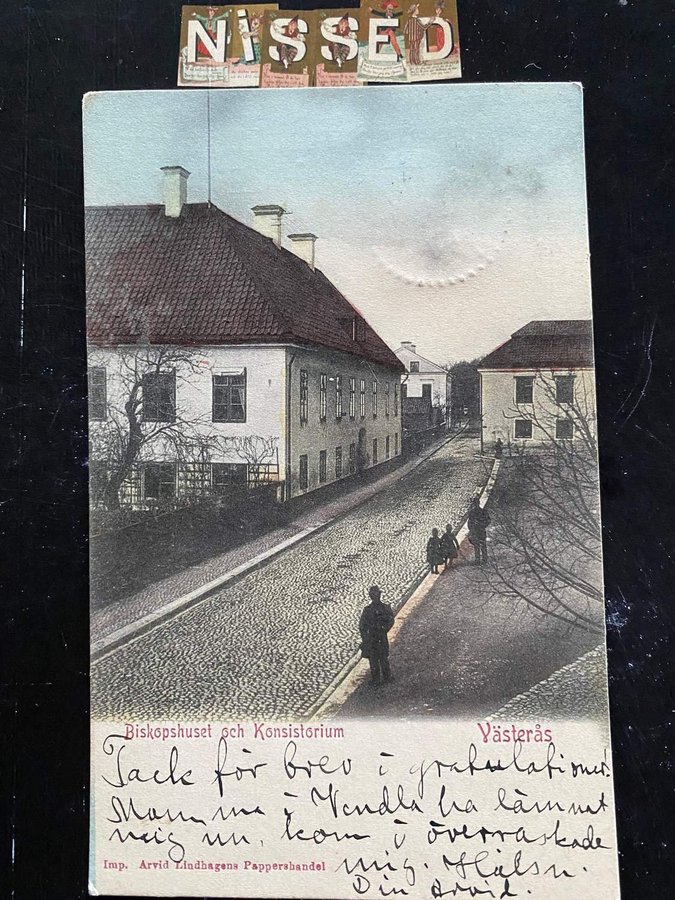 NiSSED
Biskopshuset och Konsistorium
Västerås
Tack för brev i gratulationer.
Mamma i Vendla ha lämnat
mig nu, kom i överraskade
mig. Hälsn.
Imp. Arvid Lindhagens Pappershandel
Din Arvid.